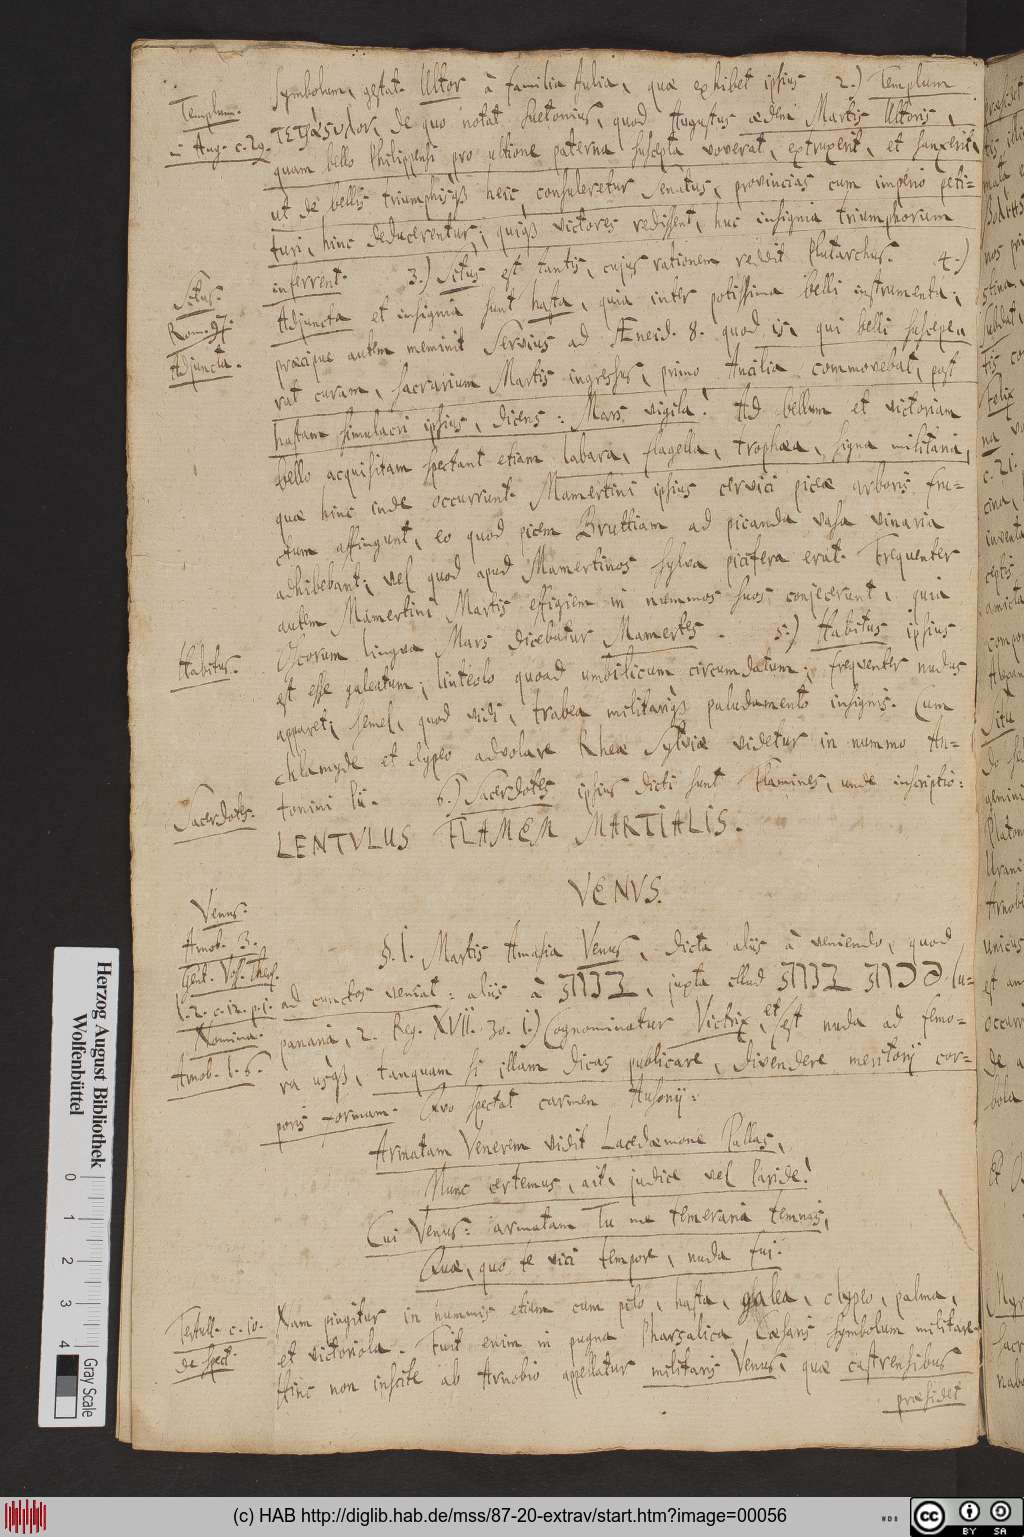 Symbolum, gestat. Ultor à familia Julia, quæ exhibet ipsius 2.) Templum
Templum.
τετράστυλον, de quo notat Suetonius, quod Augustus ædem Martis Ultoris,
Aug. c. 29.
quam bello Philippensi pro ultione paterna suscepta voverat, extruxerit, et sanxerit,
ut de bellis triumphisqs heic consuleretur Senatus, provincias cum imperio peti-
turi, hinc deducerentur; quiqs victores redissent, huc insignia triumphorum
inferrent. 3.) Situs est tantis, cujus rationem reddit Plutarchus. 4.)
Situs.
Rom. 47.
Adjuncta et insignia sunt hasta, quia inter potissima belli instrumenta;
Adjuncta.
præcipue autem meminit Servius ad Æneid. 8. quod is, qui belli suscepe-
rat curam, sacrarium Martis ingressus, primo Ancilia commovebat, post
hastam simulacri ipsius, dicens: Mars vigila! Ad bellum et victoriam
bello acquisitam spectant etiam labara, flagella, trophæa, signa militaria,
quæ hinc inde occurrunt. Mamertini ipsius cervici piceæ arboris fru-
ctum affingunt, eo quod picem Bruttiam ad picanda vasa vinaria
adhibebant; vel quod apud Mamertinos sylva picifera erat. Frequenter
autem Mamertini Martis effigiem in nummos suos conjecerunt, quia
Oscorum lingva Mars dicebatur Mamertes. 5.) Habitus ipsius
Habitus.
est esse galeatum; linteolo quoad umbilicum circumdatum; freqventer nudus
apparet; semel, quod vidi, trabea militariqs paludamento insignis. Cum
chlamyde et clypeo advolare Rheæ Sylviæ videtur in nummo An-
tonini Pii. 6.) Sacerdotes ipsius dicti sunt Flamines, unde inscriptio:
Sacerdotes.
LENTVLUS FLAMEN MARTIALIS.
VENVS.
Venus.
Arnob. 3.
§. I. Martis Amasia Venus, dicta aliis à veniendo, quod
Gent. Vos. Thes.
l. 2. c. 12. p. 1.
ad cunctos veniat: aliis à בנות, juxta illud סכות בנות Su-
Nomina.
panana, 2. Reg. XVII. 30. 1.) Cognominatur Victrix, et est nuda ad femo-
Arnob. l. 6.
ra usqs, tanquam si illam dicas publicare, divendere meritorij cor-
poris formam. Quo spectat carmen Ausonij:
Armatam Venerem vidit Lacedæmone Pallas,
Nunc certemus, ait, judice vel Paride!
Cui Venus: armatam Tu me temeraria temnis,
Quæ, quo te vici tempore, nuda fui.
Nam pingitur in nummis etiam cum pilo, hasta, galea, clypeo, palma,
Tertull. c. 10.
de Spect.
et victoriola. Fuit enim in pugna Pharsalica Cæsaris symbolum militare.
Hinc non inscite ab Arnobio appellatur militaris Venus, quæ castrensibus
præsidet
Herzog August Bibliothek
Wolfenbüttel
0
1
2
3
4
Gray Scale
(c) HAB http://diglib.hab.de/mss/87-20-extrav/start.htm?image=00056
cc BY SA